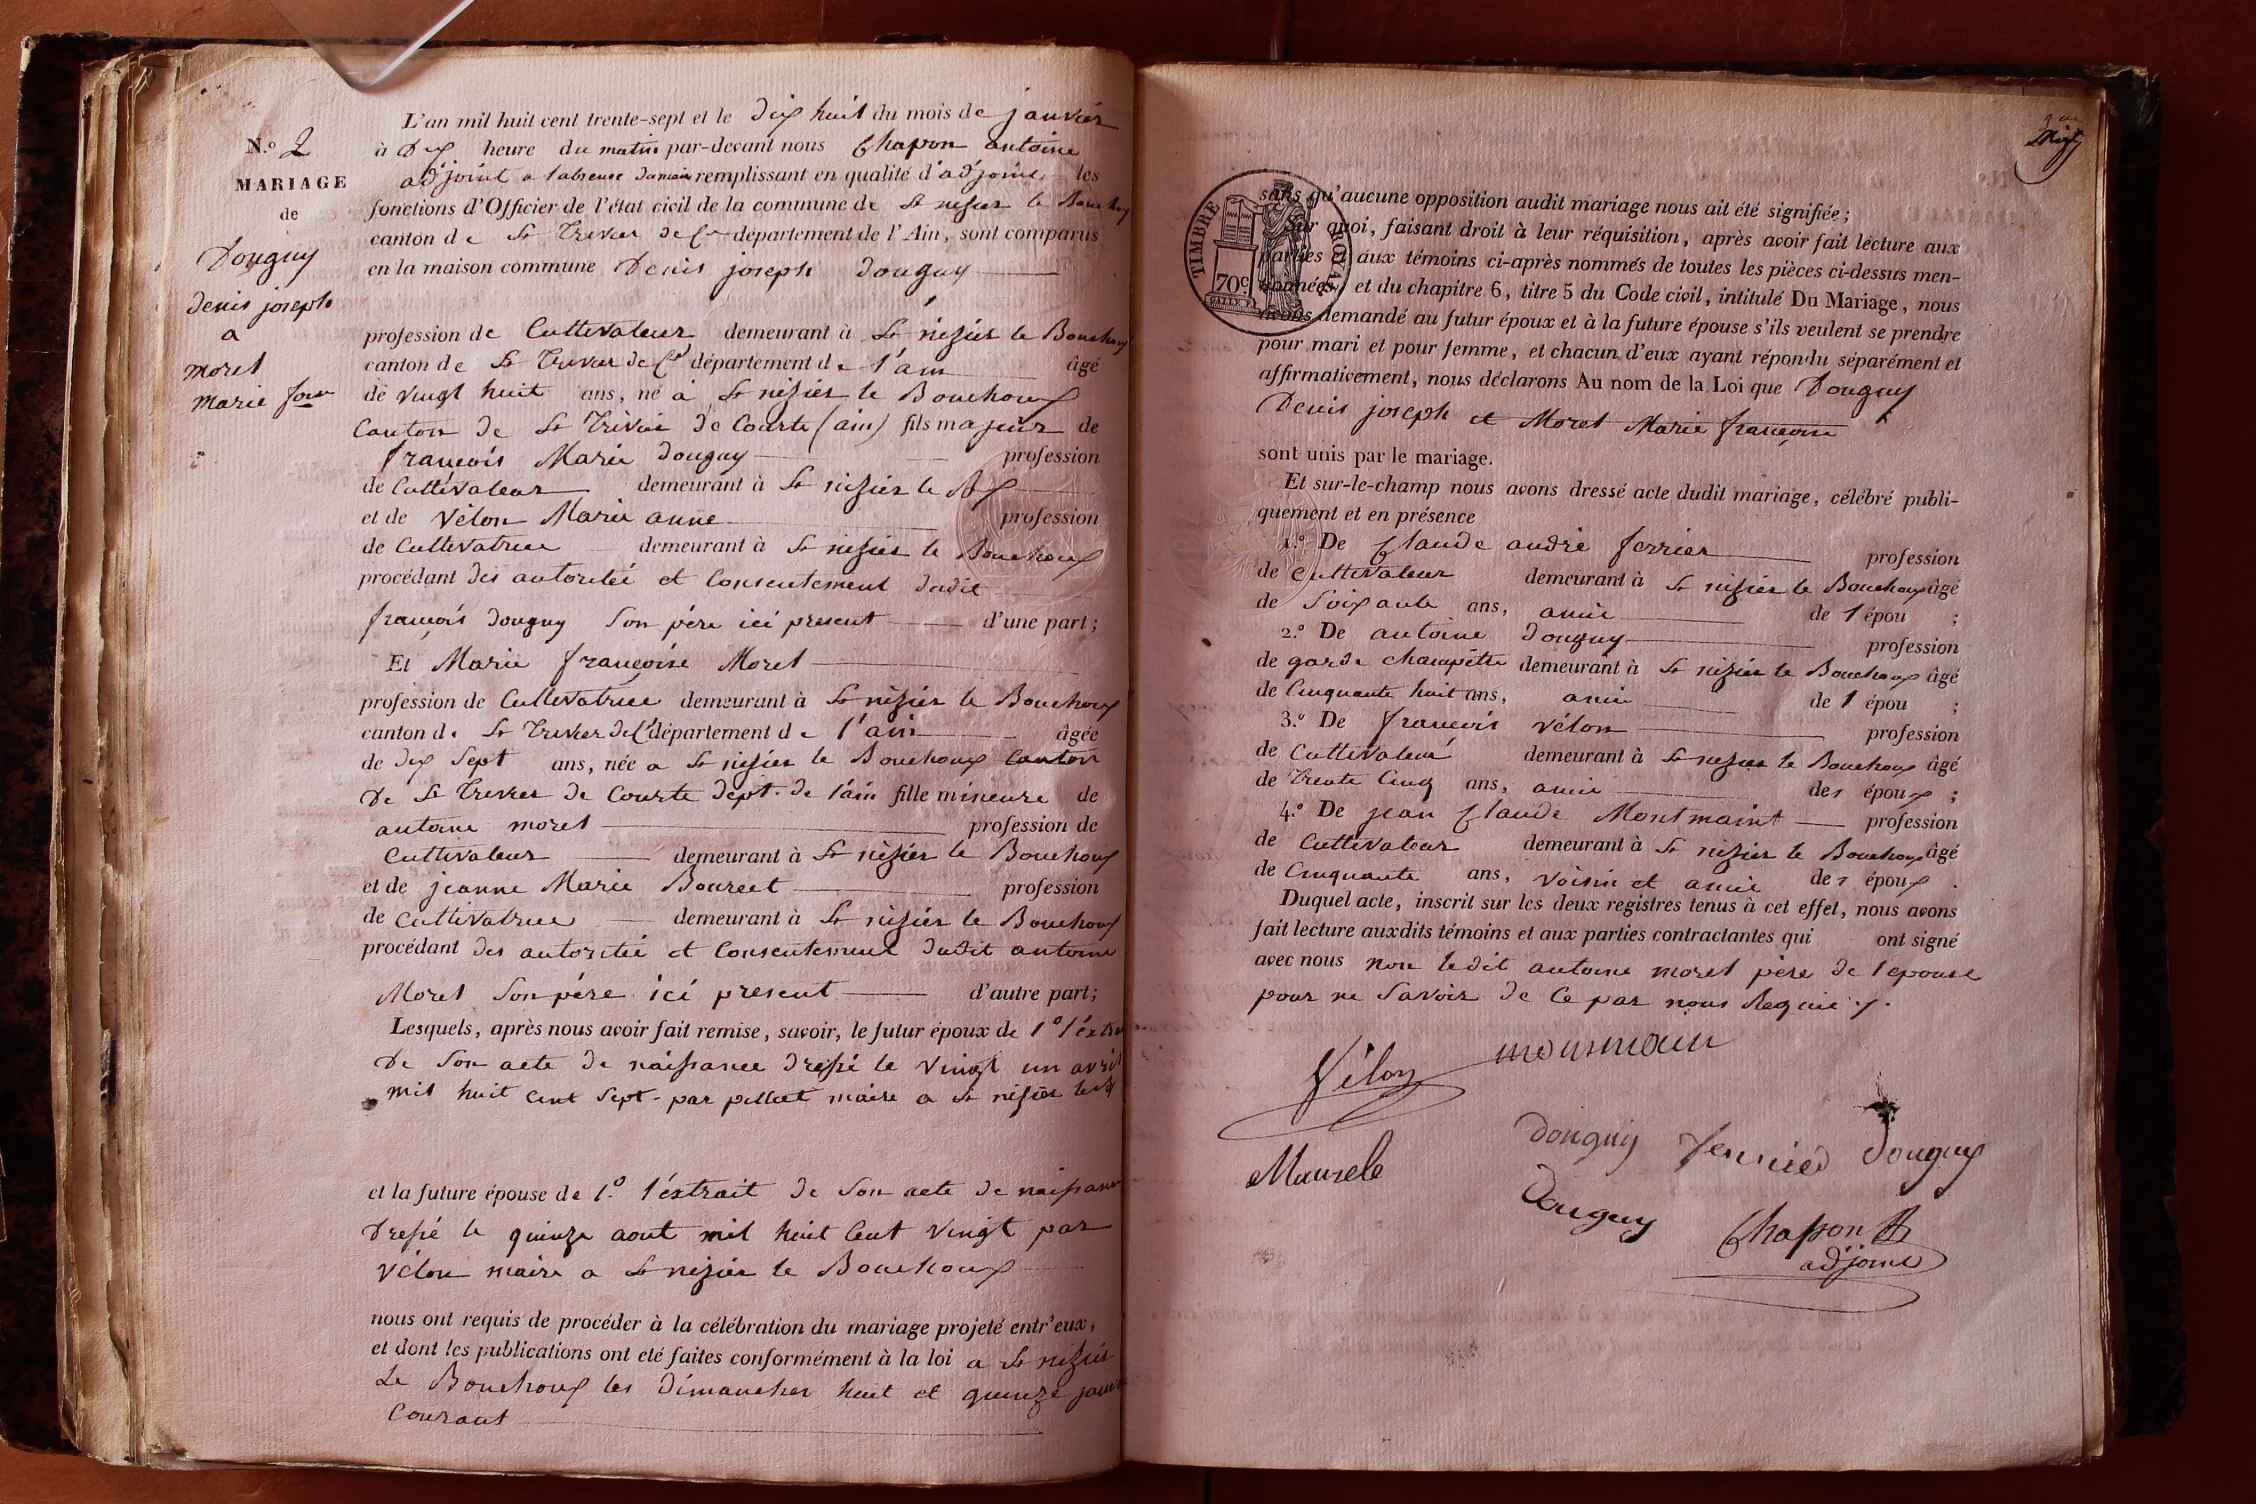 N.º 2
MARIAGE
de
Douguy
denis joseph
a
morel
marie fom
L'an mil huit cent trente-sept et le dix huit du mois de janvier
à dix heure du matin par-devant nous Chapon antoine
adjoint a l'absence du maire remplissant en qualité d'adjoint les
fonctions d'Officier de l'état civil de la commune de St nizier le Bouchoux
canton de St Trivier de Cte département de l'Ain, sont comparus
en la maison commune Denis joseph Douguy
profession de Cultivateur demeurant à St nizier le Bouchoux
canton de St Trivier de Cte département de l'ain âgé
de vingt huit ans, né à St nizier le Bouchoux
Canton de St Trivier de Courte (ain) fils majeur de
françois Marie Douguy profession
de Cultivateur demeurant à St nizier le Bx
et de Vélon Marie anne profession
de Cultivatrice demeurant à St nizier le Bouchoux
procédant des autorité et Consentement dudit
françois douguy Son père ici present d'une part;
Et Marie françoise Morel
profession de Cultivatrice demeurant à St nizier le Bouchoux
canton de St Trivier de Cte département de l'ain âgée
de dix Sept ans, née a St nizier le Bouchoux Canton
De St Trivier de Courte dépt. de l'ain fille mineure de
antoine morel profession de
Cultivateur demeurant à St nizier le Bouchoux
et de jeanne Marie Bourcet profession
de Cultivatrice demeurant à St nizier le Bouchoux
procédant des autorité et Consentement dudit antoine
Morel Son père ici present d'autre part;
Lesquels, après nous avoir fait remise, savoir, le futur époux de 1º l'extrait
De Son acte de naissance dressé le vingt un avril
mil huit cent Sept par pillat maire a St nizier le Bx
et la future épouse de 1.º l'éxtrait de Son acte de naissance
Dressé le quinze aout mil huit Cent vingt par
Vélon maire a St nizier le Bouchoux
nous ont requis de procéder à la célébration du mariage projeté entr'eux,
et dont les publications ont été faites conformément à la loi a St nizier
Le Bouchoux les dimanches huit et quinze janvier
Courant
TIMBRE ROYAL
70c.
sans qu'aucune opposition audit mariage nous ait été signifiée;
Sur quoi, faisant droit à leur réquisition, après avoir fait lecture aux
parties et aux témoins ci-après nommés de toutes les pièces ci-dessus men-
tionnées, et du chapitre 6, titre 5 du Code civil, intitulé Du Mariage, nous
avons demandé au futur époux et à la future épouse s'ils veulent se prendre
pour mari et pour femme, et chacun d'eux ayant répondu séparément et
affirmativement, nous déclarons Au nom de la Loi que Douguy
Denis joseph et Morel Marie françoise
sont unis par le mariage.
Et sur-le-champ nous avons dressé acte dudit mariage, célébré publi-
quement et en présence
1.º De Claude andré ferrier profession
de Cultivateur demeurant à St nizier le Bouchoux âgé
de Soixante ans, amie de l épou ;
2.º De antoine Douguy profession
de garde champêtre demeurant à St nizier le Bouchoux âgé
de Cinquante huit ans, amie de l épou ;
3.º De françois Vélon profession
de Cultivateur demeurant à St nizier le Bouchoux âgé
de Trente Cinq ans, amie des époux ;
4.º De jean Claude Montmaint profession
de Cultivateur demeurant à St nizier le Bouchoux âgé
de Cinquante ans, Voisin et amie des époux .
Duquel acte, inscrit sur les deux registres tenus à cet effet, nous avons
fait lecture auxdits témoins et aux parties contractantes qui ont signé
avec nous non ledit antoine morel père de l'epouse
pour ne Savoir de Ce par nous Requie
Vélon monmain
douguy ferrier douguy
Maurele
Douguy
Chapon A
adjoint